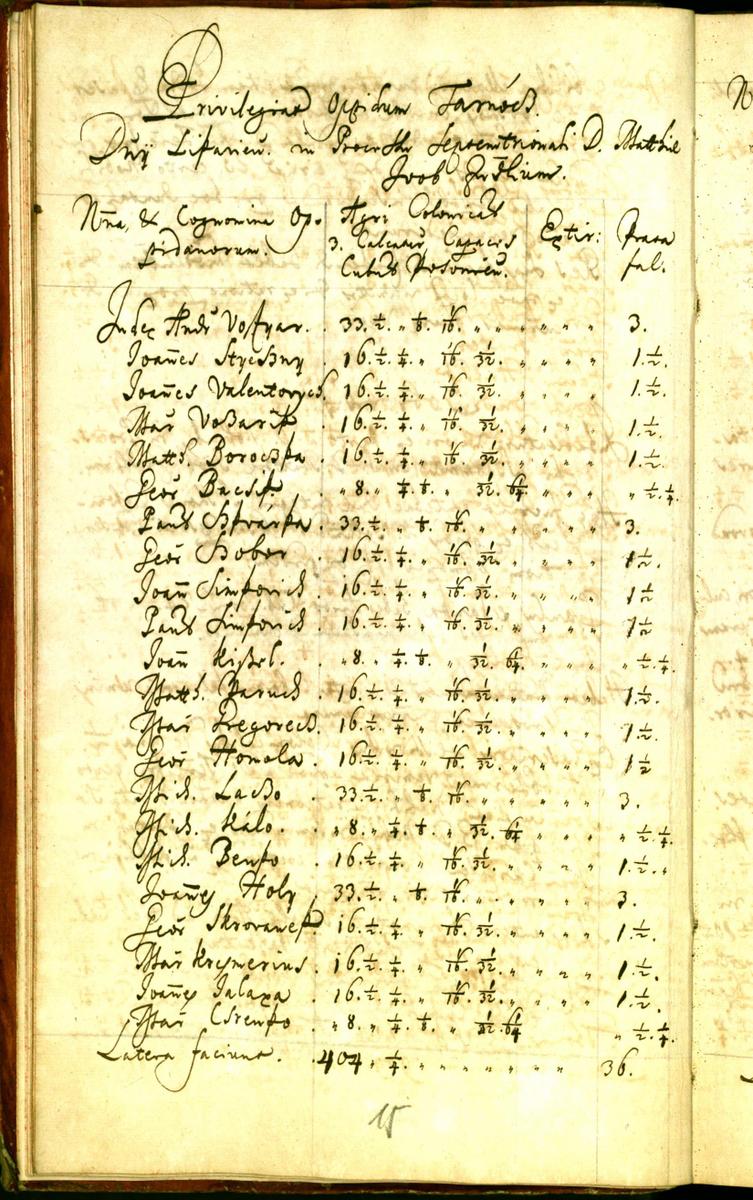 Privilegiat Oppidum Tarnócz.
Dnÿ Liptavien. in Processu Septemtrionali D. Matthiæ
Joob
Nña, & Cognomina Op- Agri Colonical Extir: Prata
pidanorum. 3. Calcatur, Capaces fal.
Cubul Posonien.
Judex Andr . 33. ½. „ ⅛. 1/16. „ „ „ „ „ „ 3.
Joañes Styeszny . 16. ½. ¼. „ 1/16. 1/32. „ „ „ „ 1. ½.
Joañes Valentovych. 16. ½. ¼. „ 1/16. 1/32. „ „ „ „ 1. ½.
Mar . 16. ½. ¼. „ 1/16. 1/32. „ „ „ „ 1. ½.
Matth. Boroczka . 16. ½. ¼. „ 1/16. 1/32. „ „ „ „ 1. ½.
Geor Bacsik. „ 8. „ ¼. ⅛. „ 1/32. 1/64. „ „ „ „ ½. ¼.
Paul . 33. ½. „ ⅛. 1/16. „ „ „ „ „ 3.
Geor Bobor . 16. ½. ¼. „ 1/16. 1/32. „ „ „ „ 1 ½
Joañ Simkovich . 16. ½. ¼. „ 1/16. 1/32. „ „ „ „ 1 ½
Paul Simkovich . 16. ½. ¼. „ 1/16. 1/32. „ „ „ „ 1 ½
Joañ Kiszel. . „ 8. „ ¼. ⅛. „ 1/32. 1/64. „ „ „ „ ½. ¼.
Matth. Baruch . 16. ½. ¼. „ 1/16. 1/32. „ „ „ „ 1. ½.
Mar Gregorecz. 16. ½. ¼. „ 1/16. 1/32. „ „ „ „ 1. ½.
Geor Homola . 16. ½. ¼. „ 1/16. 1/32. „ „ „ „ 1 ½
Mich. Laczo . 33. ½. „ ⅛. 1/16. „ „ „ „ „ 3.
Mich. Kálo . „ 8. „ ¼. ⅛. „ 1/32. 1/64 „ „ „ „ ½. ¼.
Mich. Benko . 16. ½. ¼. „ 1/16. 1/32. „ „ „ „ 1. ½. „
Joañes Holy . 33. ½. „ ⅛. 1/16. „ „ „ „ „ 3.
Geor Skrovanek . 16. ½. ¼. „ 1/16. 1/32. „ „ „ „ 1. ½.
Mar Kresmerius . 16. ½. ¼. „ 1/16. 1/32. „ „ „ „ 1. ½.
Joañes Jalaxa . 16. ½. ¼. „ 1/16. 1/32. „ „ „ „ 1. ½.
Mar . „ 8. „ ¼. ⅛. „ 1/32. 1/64 „ ½. ¼.
Latera faciunt. . 404. „ ¼. „ „ „ „ „ „ „ „ 36.
15